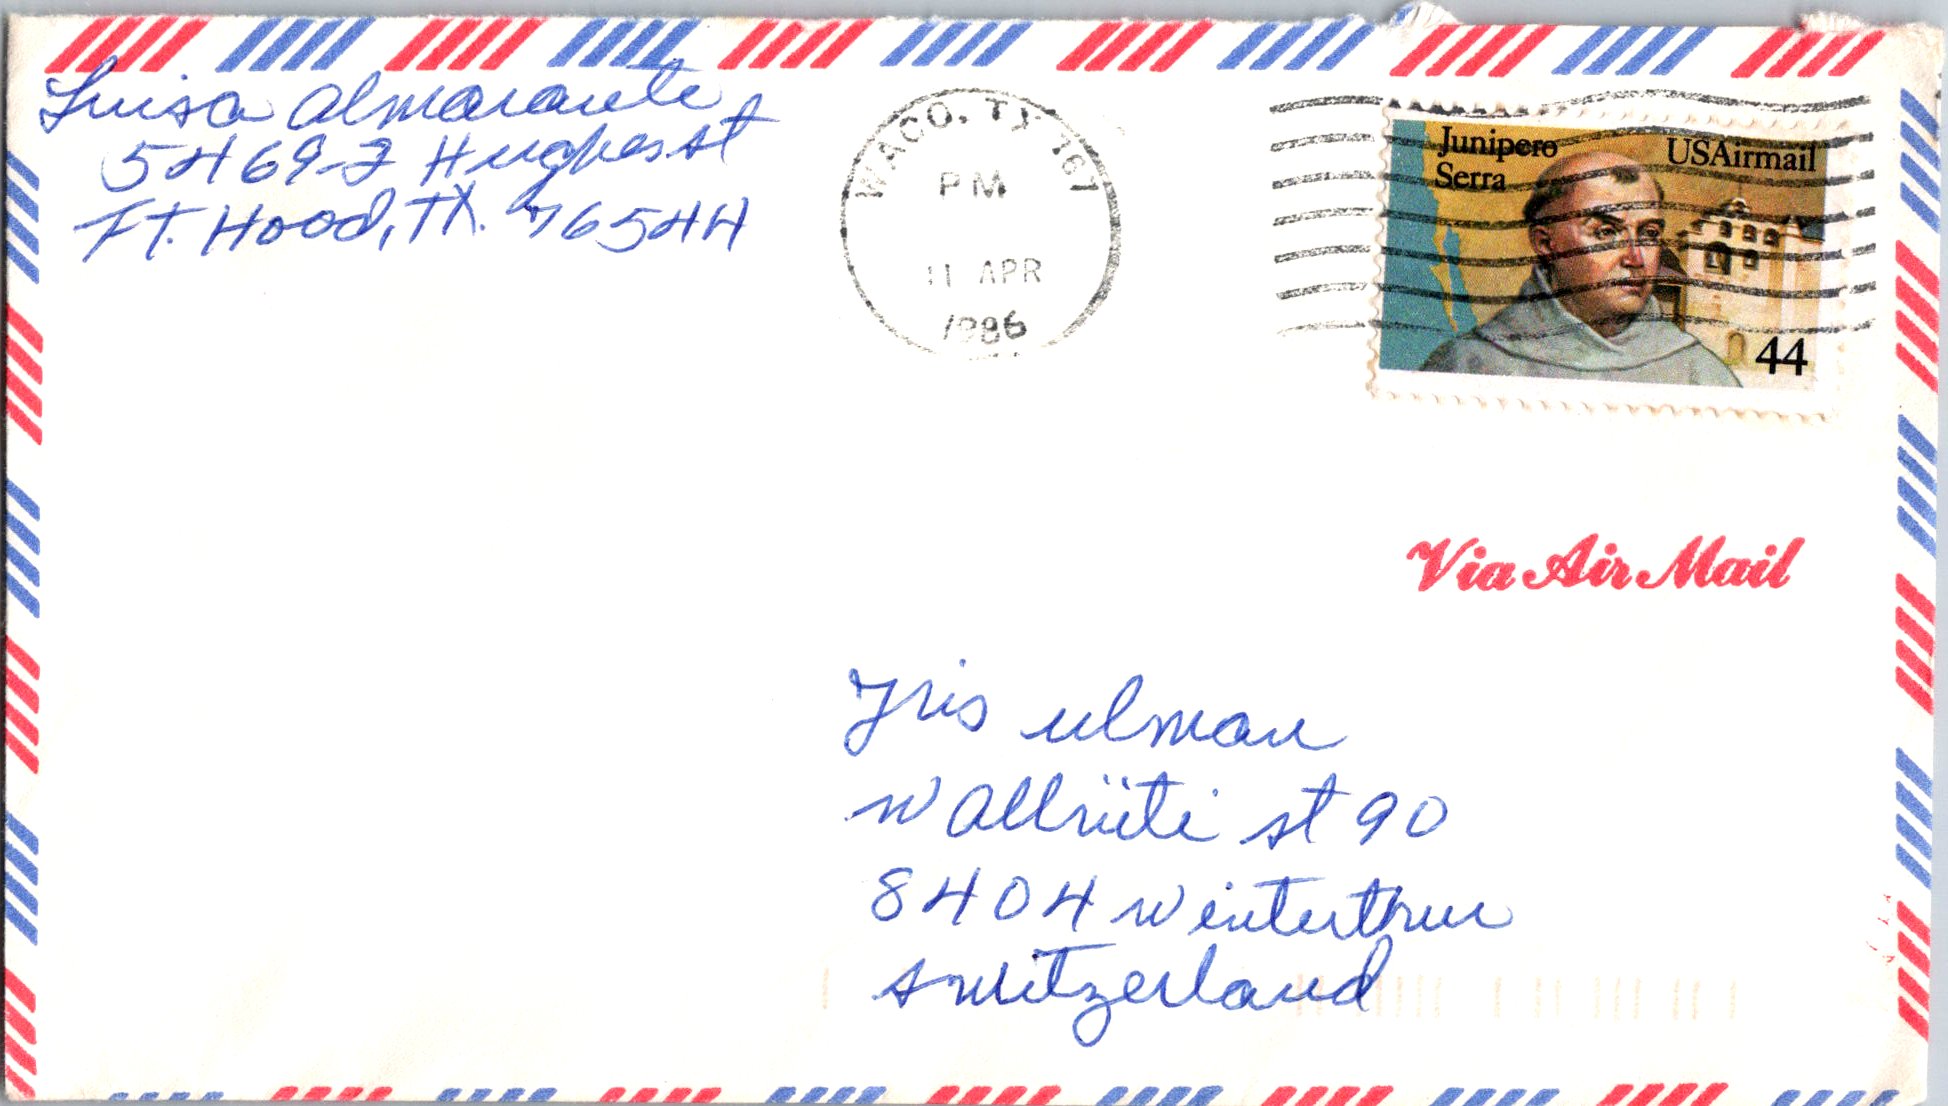 Luisa Almarante
5469-2 Hughes st
Ft. Hood, TX. 76544
WACO, TX 767
PM
11 APR
1986
Junipero
Serra
USAirmail
44
Via Air Mail
Iris ulman
Wallrüti st 90
8404 Winterthur
Switzerland